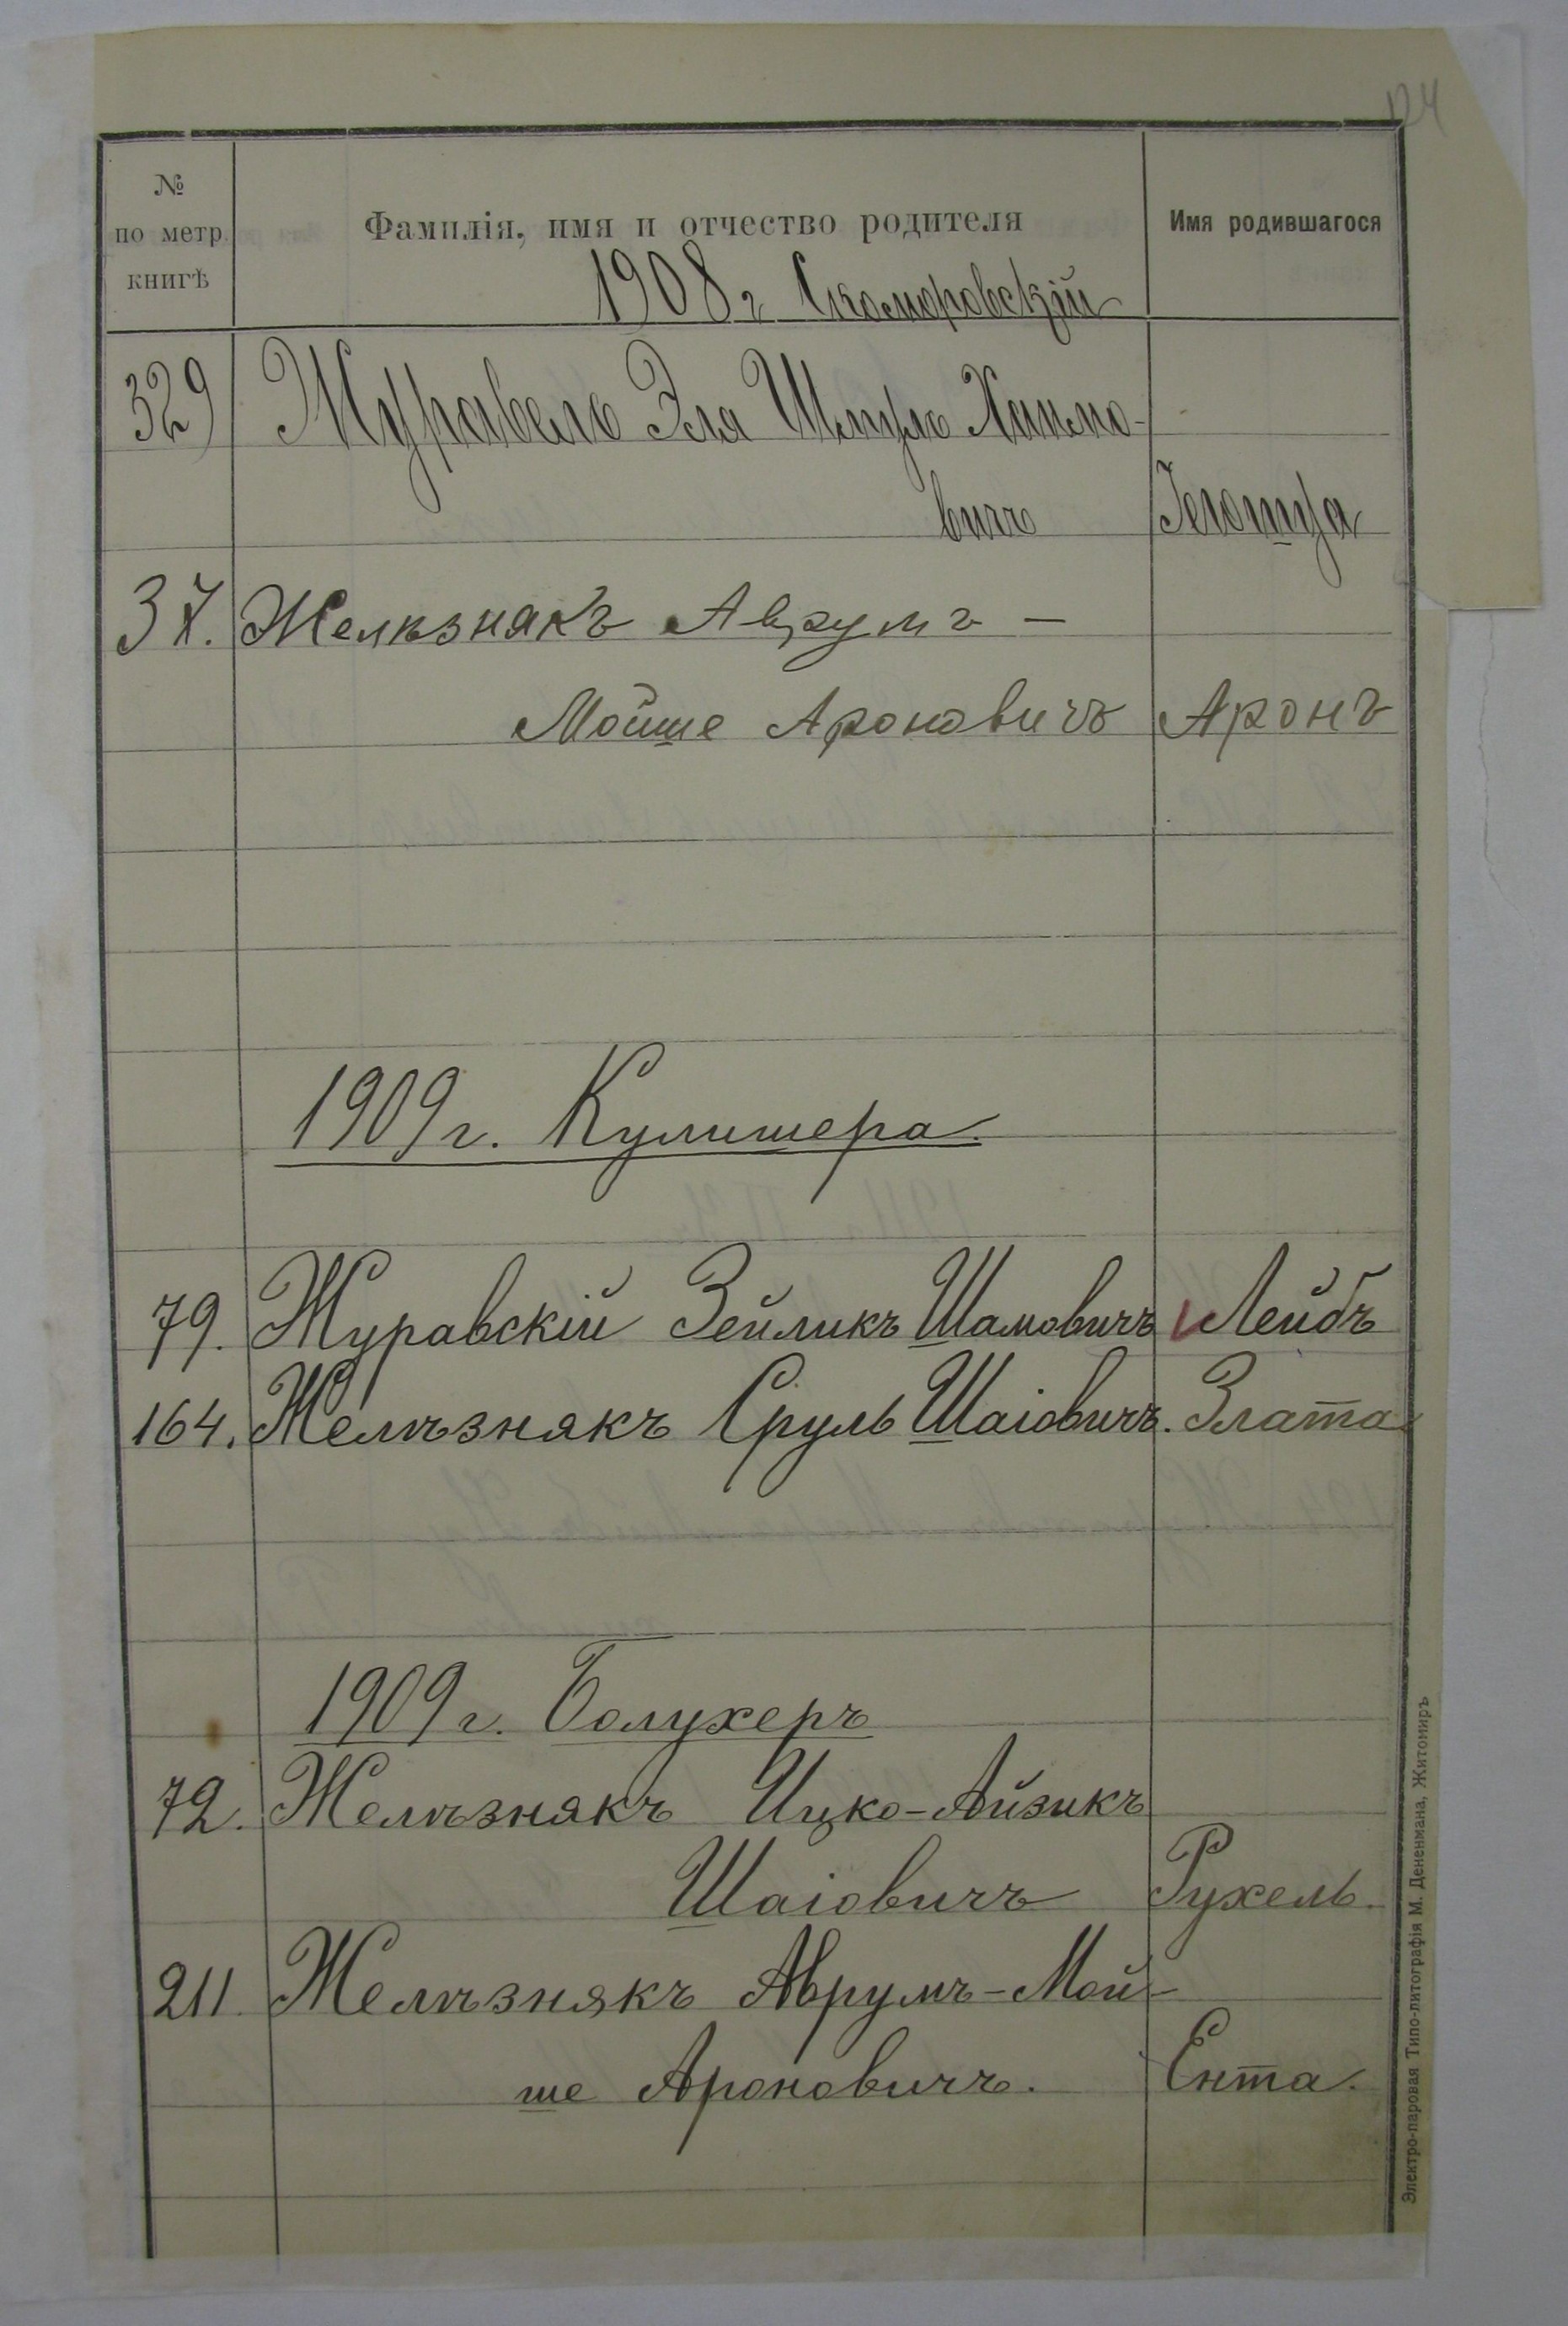 124
№
по метр.
книгѣ
Фамилія, имя и отчество родителя
Имя родившагося
1908 г Скоморовскій
329 Журавель Эля Шмуль Хаимо-
вичъ Іегошуа
37. Желѣзнякъ Аврумъ –
Мойше Ароновичъ Аронъ
1909 г. Кулишера.
79. Журавскій Зейликъ Шамовичъ Лейбъ
164. Желѣзнякъ Сруль Шаіовичъ. Злата
1909 г. Болухеръ
72. Желѣзнякъ Ицко-Айзикъ
Шаіовичъ Рухель.
211. Желѣзнякъ Аврумъ-Мой-
ше Ароновичъ. Ента.
Электро-паровая Типо-литографія М. Дененмана, Житомиръ